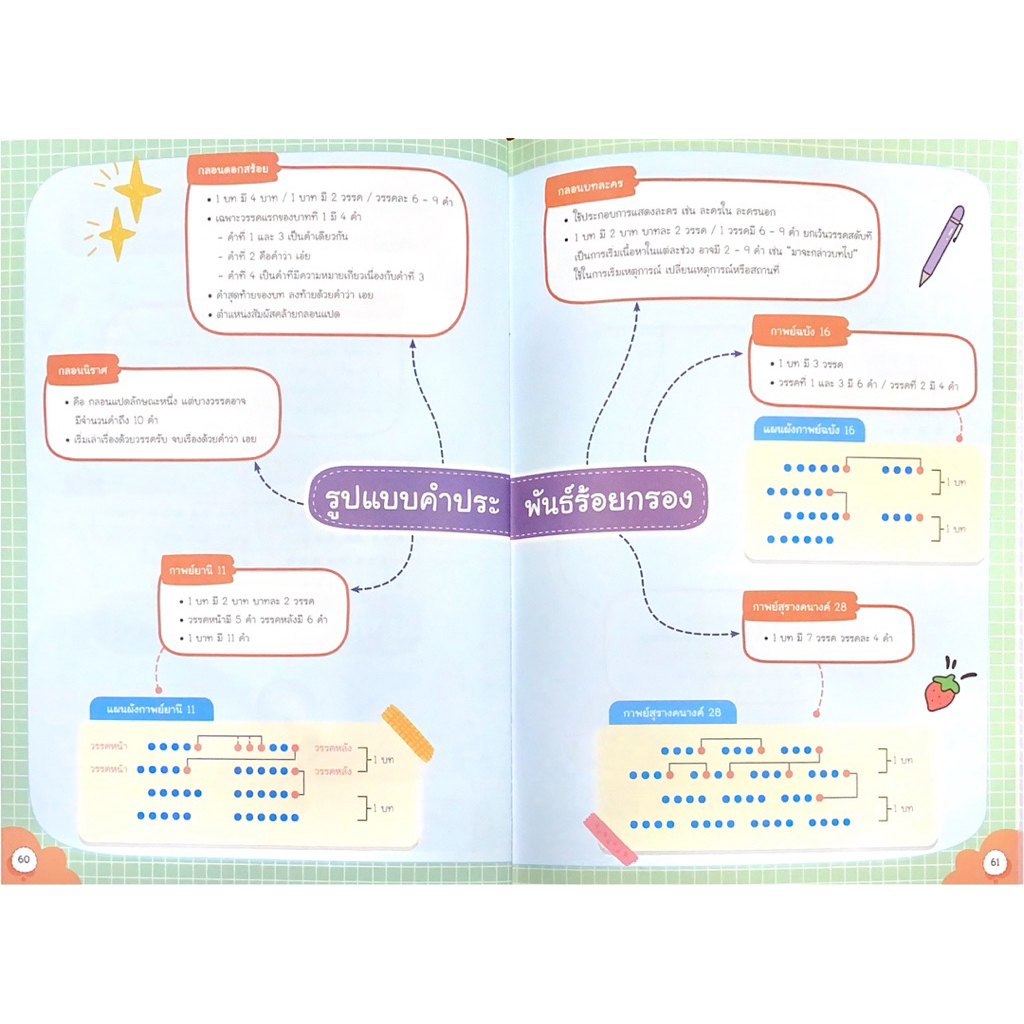 กลอนดอกสร้อย
• 1 บท มี 4 บาท / 1 บาท มี 2 วรรค / วรรคละ 6 - 9 คำ
• เฉพาะวรรคแรกของบาทที่ 1 มี 4 คำ
- คำที่ 1 และ 3 เป็นคำเดียวกัน
- คำที่ 2 คือคำว่า เอ๋ย
- คำที่ 4 เป็นคำที่มีความหมายเกี่ยวเนื่องกับคำที่ 3
• คำสุดท้ายของบท ลงท้ายด้วยคำว่า เอย
• ตำแหน่งสัมผัสคล้ายกลอนแปด
กลอนนิราศ
• คือ กลอนแปดลักษณะหนึ่ง แต่บางวรรคอาจ
มีจำนวนคำถึง 10 คำ
• เริ่มเล่าเรื่องด้วยวรรครับ จบเรื่องด้วยคำว่า เอย
รูปแบบคำประพันธ์ร้อยกรอง
กาพย์ยานี 11
• 1 บท มี 2 บาท บาทละ 2 วรรค
• วรรคหน้ามี 5 คำ วรรคหลังมี 6 คำ
• 1 บาท มี 11 คำ
แผนผังกาพย์ยานี 11
วรรคหน้า วรรคหลัง
1 บท
วรรคหน้า วรรคหลัง
1 บท
60
กลอนบทละคร
• ใช้ประกอบการแสดงละคร เช่น ละครใน ละครนอก
• 1 บท มี 2 บาท บาทละ 2 วรรค / 1 วรรคมี 6 - 9 คำ ยกเว้นวรรคสดับที่
เป็นการเริ่มเนื้อหาในแต่ละช่วง อาจมี 2 - 9 คำ เช่น "มาจะกล่าวบทไป"
ใช้ในการเริ่มเหตุการณ์ เปลี่ยนเหตุการณ์หรือสถานที่
กาพย์ฉบัง 16
• 1 บท มี 3 วรรค
• วรรคที่ 1 และ 3 มี 6 คำ / วรรคที่ 2 มี 4 คำ
แผนผังกาพย์ฉบัง 16
1 บท
1 บท
กาพย์สุรางคนางค์ 28
• 1 บท มี 7 วรรค วรรคละ 4 คำ
กาพย์สุรางคนางค์ 28
1 บท
1 บท
61